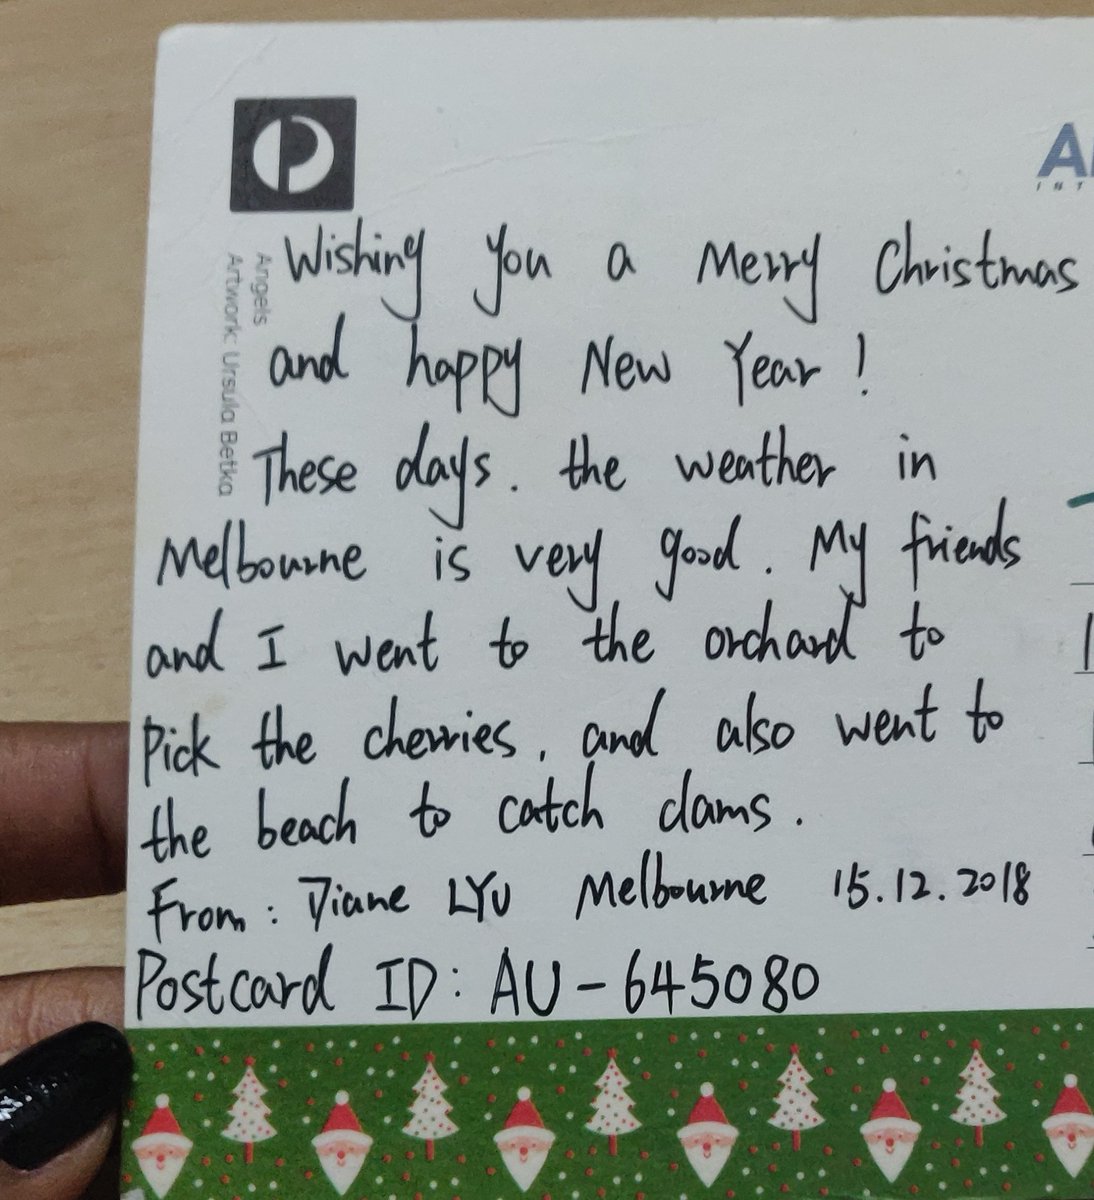 Wishing you a Merry Christmas
and happy New Year!
These days. the weather in
Melbourne is very good. My friends
and I went to the orchard to
Pick the cherries, and also went to
the beach to catch clams.
From: Diane LYU Melbourne 15.12.2018
Postcard ID: AU-645080
Angels
Artwork: Ursula Betka